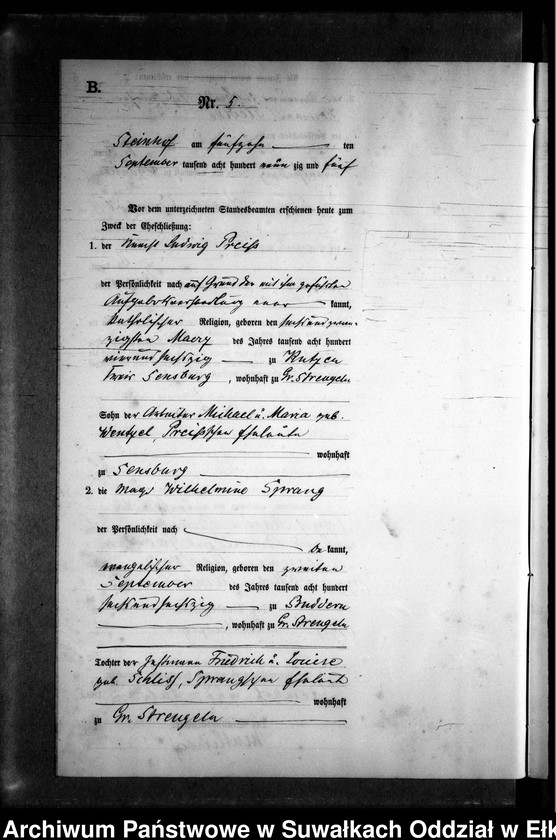 B.
Nr. 5.
Steinhof am fünfzehn ten
September tausend acht hundert neun zig und fünf
Vor dem unterzeichneten Standesbeamten erschienen heute zum
Zweck der Eheschließung:
1. der Knecht Ludwig Preiß
der Persönlichkeit nach auf Grund der mit ihm geführten
Aufgebotsverhandlung aner kannt,
katholischer Religion, geboren den sechsundzwan-
zigsten Maerz des Jahres tausend acht hundert
vierundsechszig zu
Kreis Sensburg, wohnhaft zu Gr. Strengeln
Sohn der Arbeiter Michael u. Maria geb.
Wentzel, Preißschen Eheleute
wohnhaft
zu Sensburg
2. die Magd Wilhelmine Sprang
der Persönlichkeit nach
be kannt,
evangelischer Religion, geboren den zweiten
September des Jahres tausend acht hundert
sechsundsechszig zu Buddern
, wohnhaft zu Gr. Strengeln
Tochter der Friedrich u. Louise
geb. Sprangschen Eheleute
wohnhaft
zu Gr. Strengeln
Archiwum Państwowe w Suwałkach Oddział w Ełk